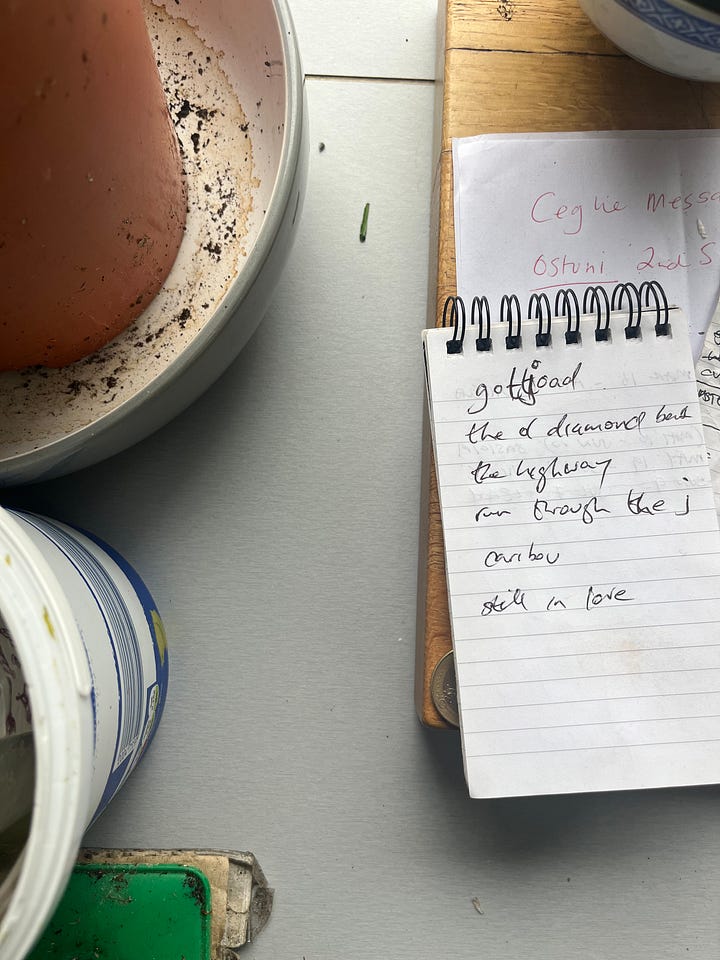 Ceglie Messa
Ostuni 2nd S
gottjoad
the d diamond bent
the highway
run through the j
caribou
still in love